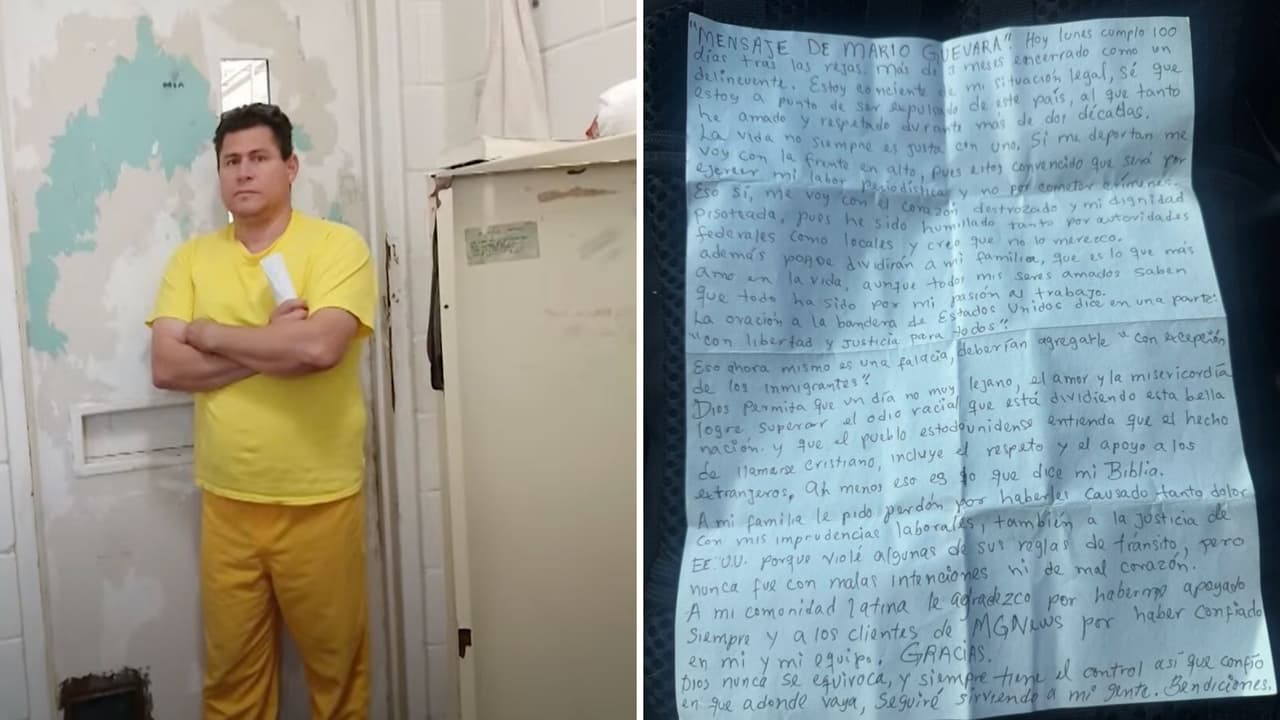 "MENSAJE DE MARIO GUEVARA". Hoy lunes cumplo 100
días tras las rejas, más de 3 meses encerrado como un
delincuente. Estoy conciente de mi situación legal, sé que
estoy a punto de ser expulsado de este país, al que tanto
he amado y respetado durante más de dos décadas.
La vida no siempre es justa con uno. Si me deportan me
voy con la frente en alto, pues estoy convencido que será por
ejercer mi labor periodística y no por cometer crímenes.
Eso sí, me voy con el corazón destrozado y mi dignidad
pisoteada, pues he sido humillado tanto por autoridades
federales como locales y creo que no lo merezco.
además porque dividirán a mi familia, que es lo que más
amo en la vida, aunque todos mis seres amados saben
que todo ha sido por mi pasión al trabajo.
La oración a la bandera de Estados Unidos dice en una parte:
"con libertad y justicia para todos".
Eso ahora mismo es una falacia, deberían agregarle "con excepción
de los inmigrantes".
Dios permita que un día no muy lejano, el amor y la misericordia
logre superar el odio racial que está dividiendo esta bella
nación. y que el pueblo estadounidense entienda que el hecho
de llamarse cristiano, incluye el respeto y el apoyo a los
extranjeros. Ah menos eso es lo que dice mi Biblia.
A mi familia le pido perdón por haberles causado tanto dolor
con mis imprudencias laborales, también a la justicia de
EE.UU. porque violé algunas de sus reglas de tránsito, pero
nunca fue con malas intenciones ni de mal corazón.
A mi comunidad latina le agradezco por haberme apoyado
siempre y a los clientes de MGNews por haber confiado
en mi y mi equipo. GRACIAS.
Dios nunca se equivoca, y siempre tiene el control así que confío
en que adonde vaya, seguiré sirviendo a mi gente. Bendiciones.